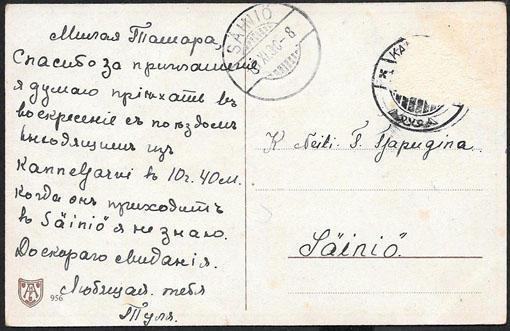 Милая Тамара,
Спасибо за приглашение
я думаю пріѣхать въ
воскресение съ поѣздом
выходящим из
Kanneljärvi в 10 г. 40 м.
когда он приходить
в Säiniö я не знаю.
До скораго свиданія.
Любящая тебя
Туля.
SÄINIÖ
K Neiti. T.
Säiniö.
956